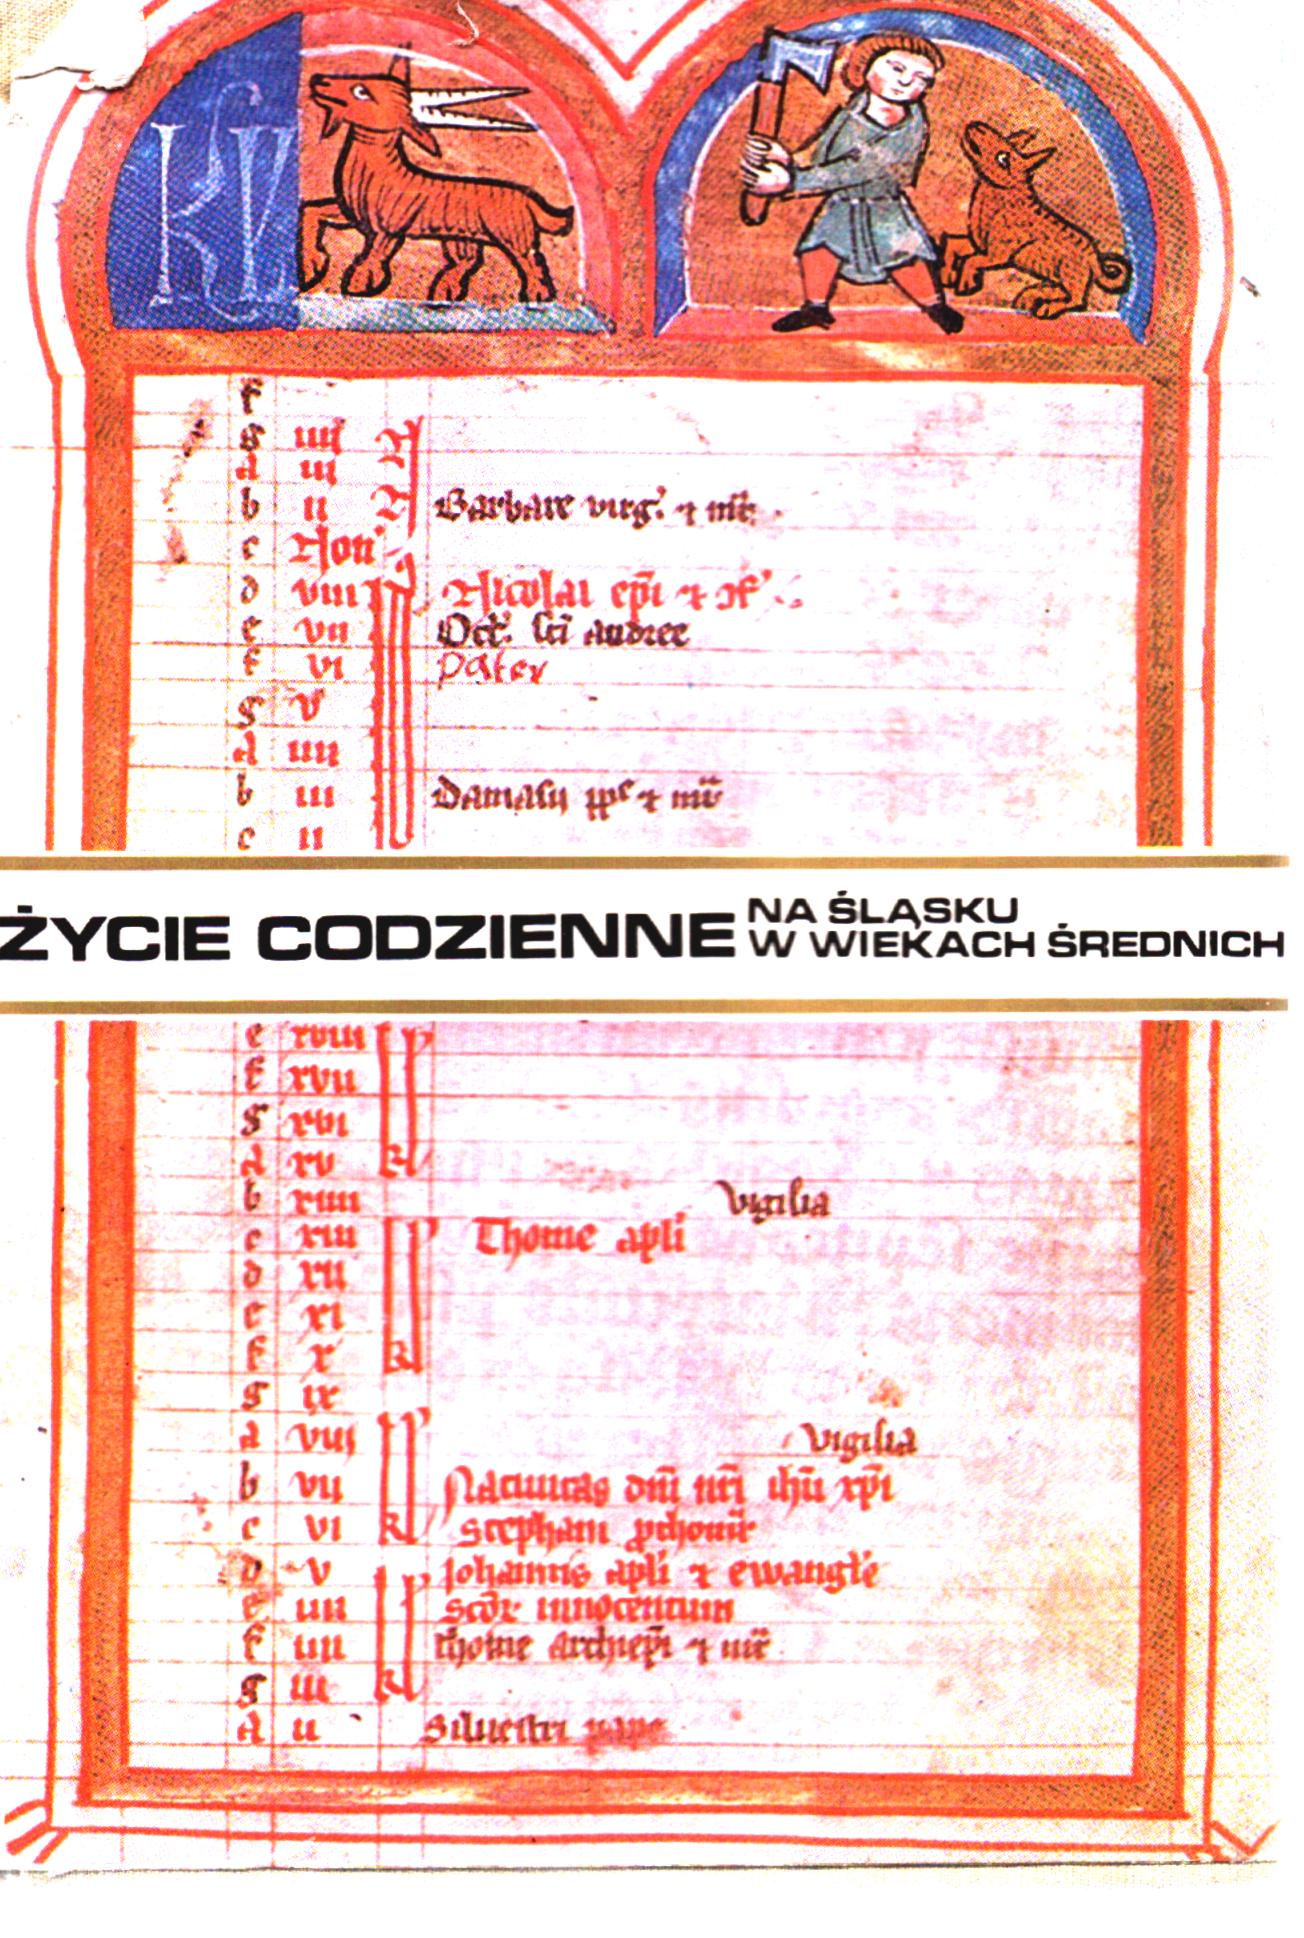 KL
f
g iiij N
A iij
b ii N
c Non
d viii Nicolai ep̄i ⁊ ꝯf
e vii Oct. sci andree
f vi pater
g v
A iiii
b iii Damasij pp̄e ⁊ mr̄
c ii
ŻYCIE CODZIENNE NA ŚLĄSKU
W WIEKACH ŚREDNICH
e xviii
f xvii
g xvi
A xv
b xiiii vigilia
c xiii Thome apli
d xii
e xi
f x
g ix
A viii vigilia
b vii Natiuitas dn̄i nr̄i ihū xp̄i
c vi Stephani
d v Johannis apli ⁊ ewangle
e iiii scōr innocentum
f iiii thome archiep̄i ⁊ mr̄
g iii
A ii Siluestri pape